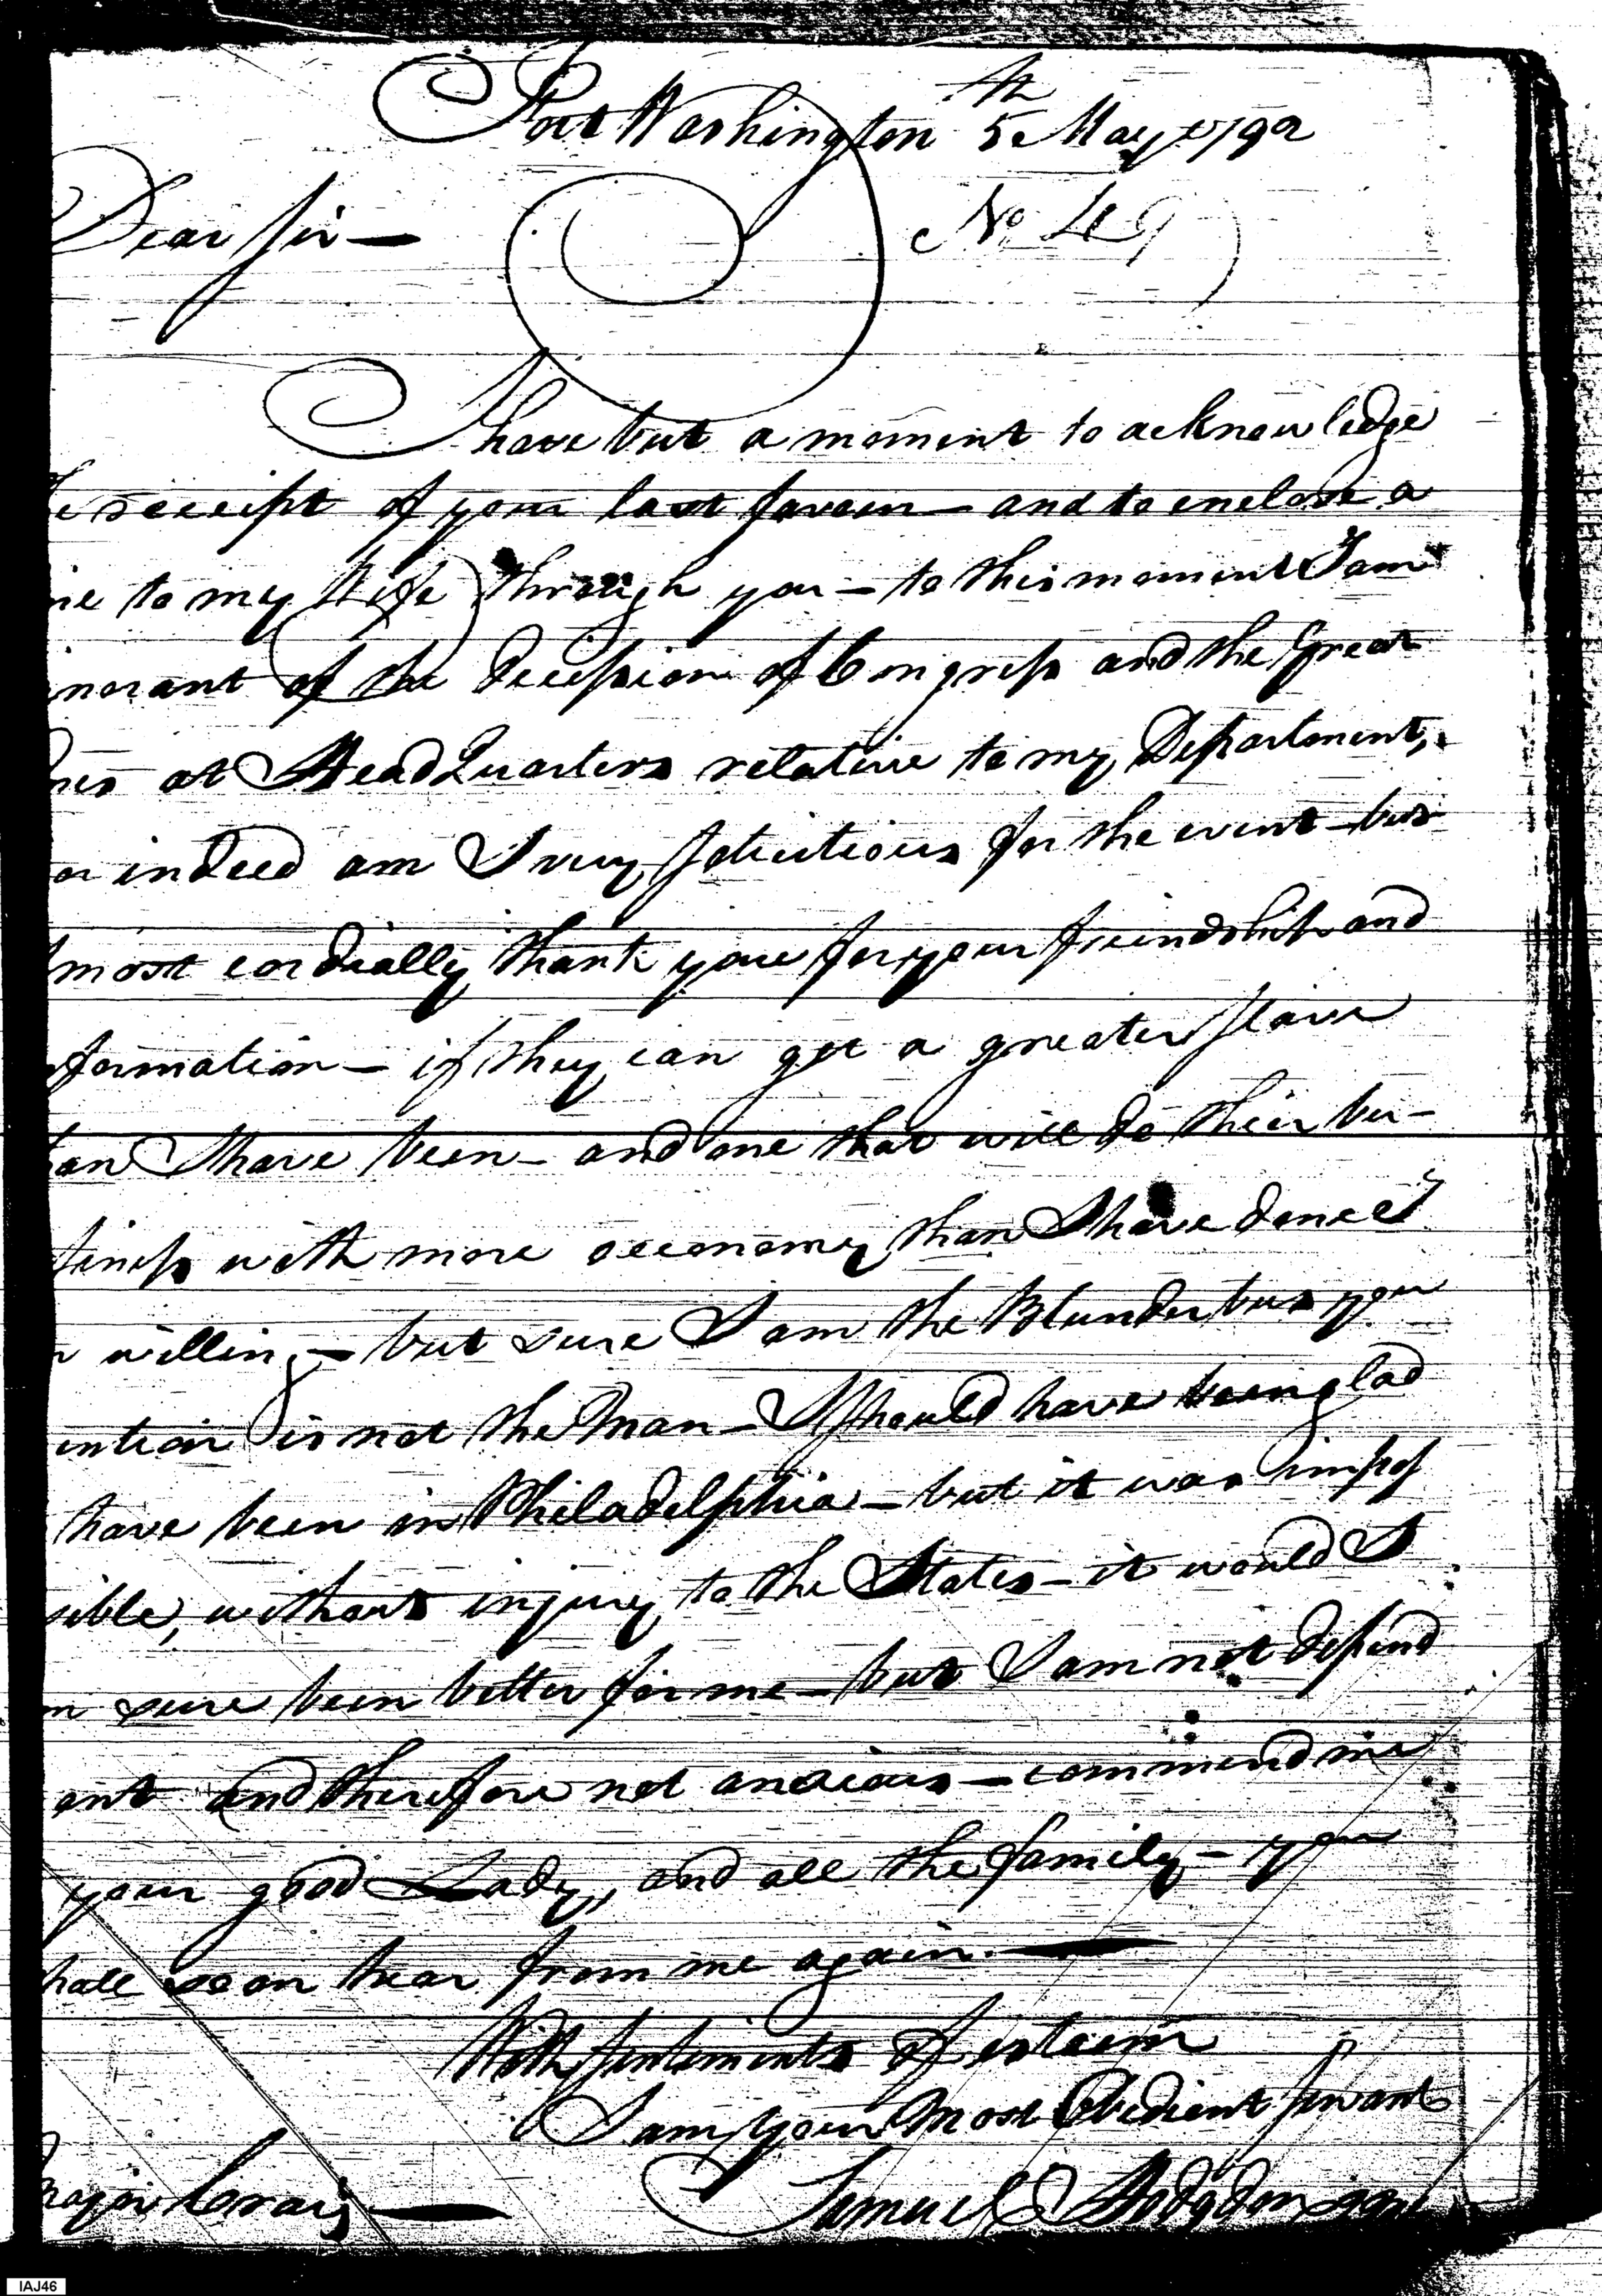 Fort Washington 5th May 1792
Dear Sir —
No 49
I have but a moment to acknowledge
e receipt of your last favour — and to enclose a
ne to my Wife through you — to this moment I am
norant of the Decission of Congress and the Great
nes at Head Quarters relative to my Department,
or indeed am I very solicitious for the event — but
most cordially thank you for your friendship and
formation — if they can get a greater slave
han I have been — and one that will do their bu-
siness with more oeconomy than I have done I
willing — but sure I am the Blunderbus you
ention is not the Man — I should have been glad
have been in Philadelphia — but it was impos
sible, without injury to the States — it would I
m sure been better for me — but I am not depend
ent and therefore not anxious — commend me
your good Lady, and all the family — you
hall soon hear from me again. —
With sentiments of esteem
I am your Most Obedient servant
Major Craig —
Samuel Hodgdon
IAJ46